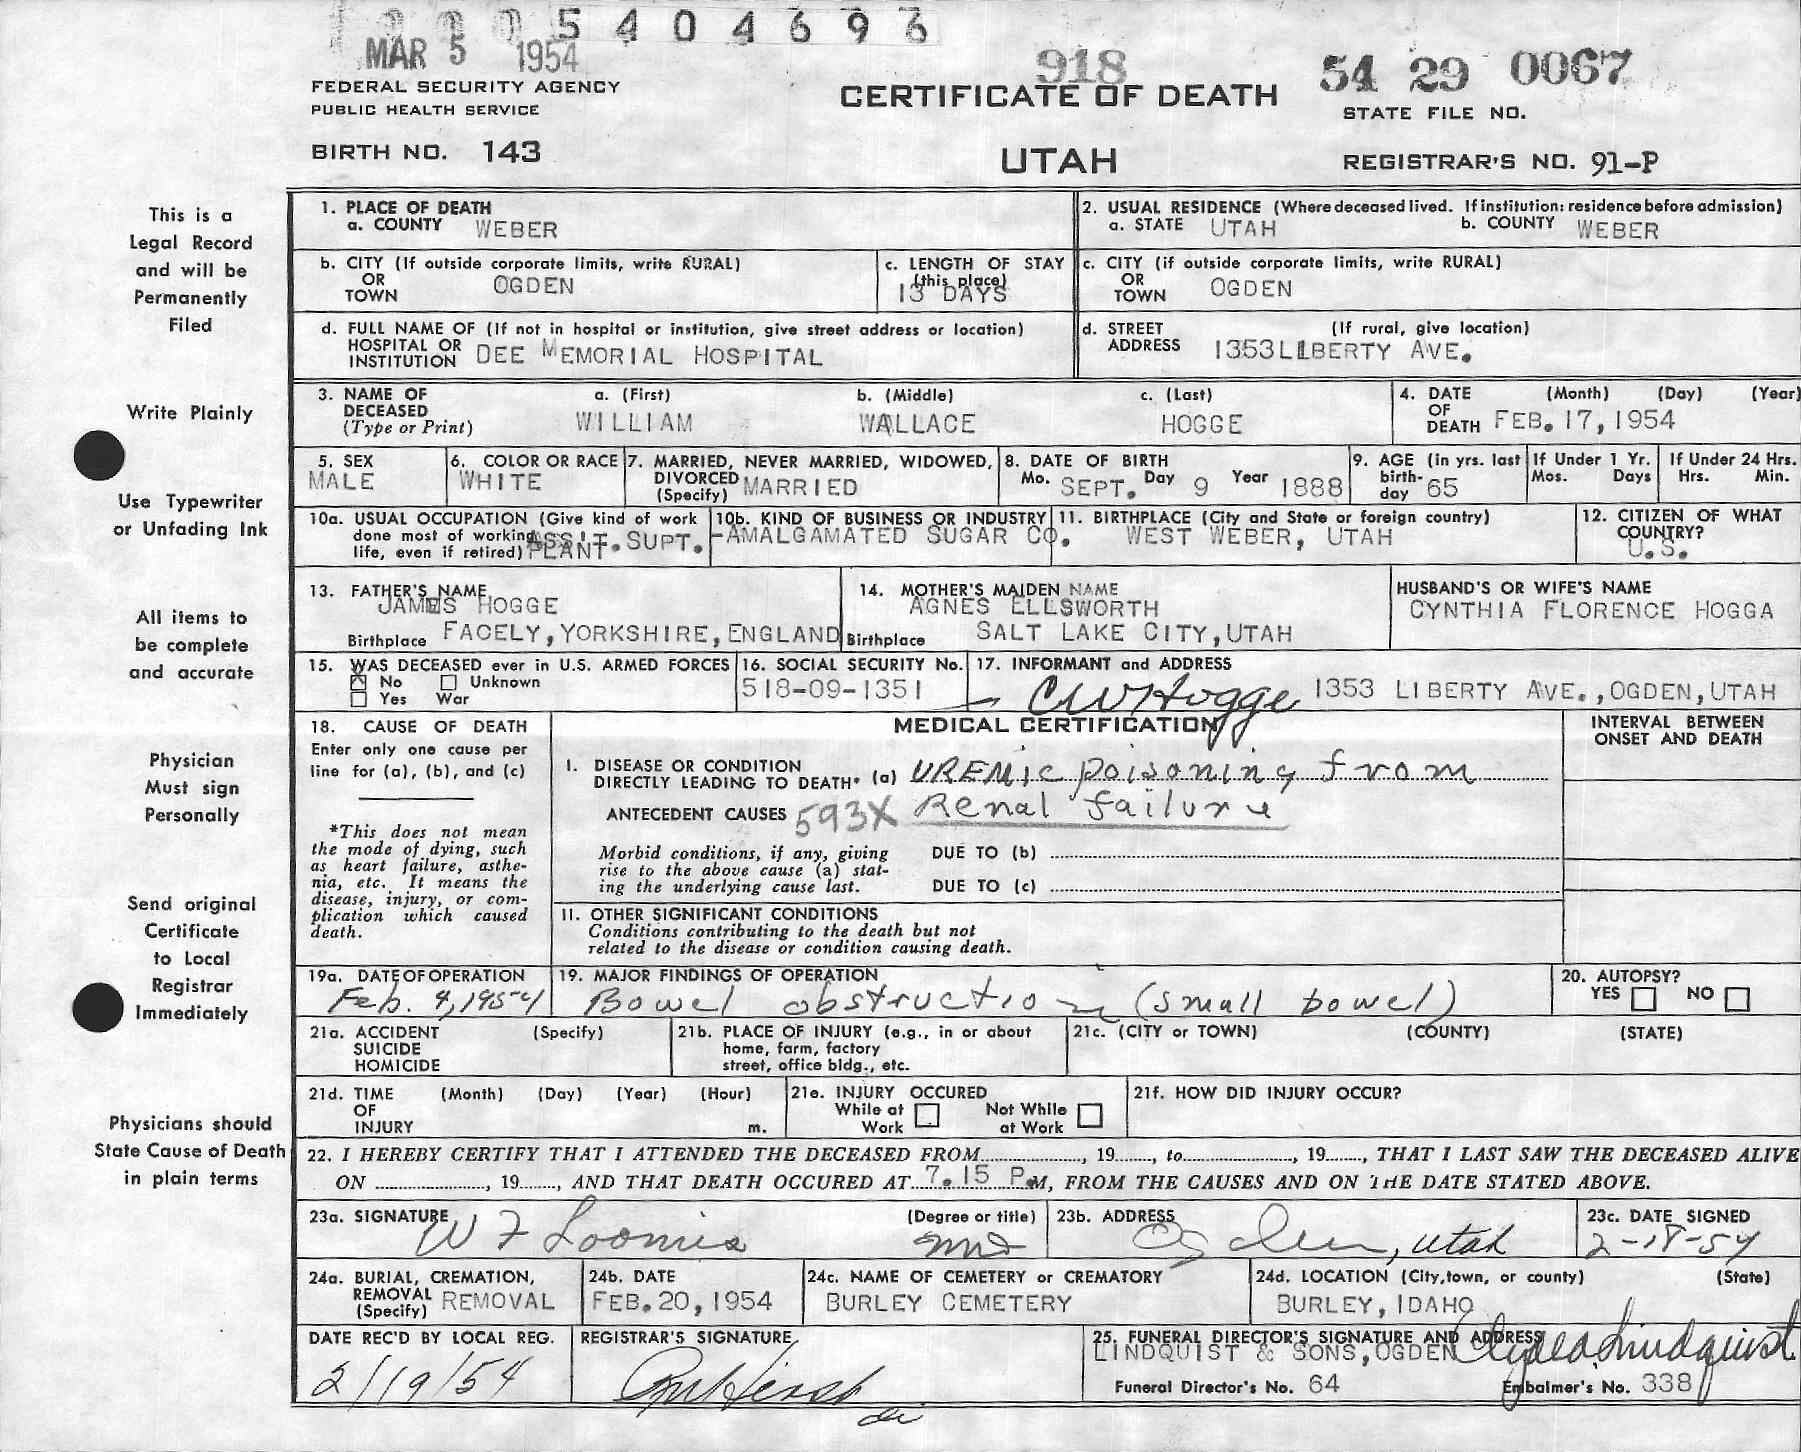 5404696
MAR 5 1954
918
54 29 0067
FEDERAL SECURITY AGENCY
PUBLIC HEALTH SERVICE
CERTIFICATE OF DEATH
STATE FILE NO.
BIRTH NO. 143
UTAH
REGISTRAR'S NO. 91-P
This is a
Legal Record
and will be
Permanently
Filed
Write Plainly
Use Typewriter
or Unfading Ink
All items to
be complete
and accurate
Physician
Must sign
Personally
Send original
Certificate
to Local
Registrar
Immediately
Physicians should
State Cause of Death
in plain terms
1. PLACE OF DEATH
a. COUNTY WEBER
2. USUAL RESIDENCE (Where deceased lived. If institution: residence before admission)
a. STATE UTAH b. COUNTY WEBER
b. CITY (If outside corporate limits, write RURAL)
OR
TOWN OGDEN
c. LENGTH OF STAY
(this place)
13 DAYS
c. CITY (if outside corporate limits, write RURAL)
OR
TOWN OGDEN
d. FULL NAME OF (If not in hospital or institution, give street address or location)
HOSPITAL OR
INSTITUTION DEE MEMORIAL HOSPITAL
d. STREET (If rural, give location)
ADDRESS 1353 LIBERTY AVE.
3. NAME OF
DECEASED
(Type or Print)
a. (First) b. (Middle) c. (Last)
WILLIAM WALLACE HOGGE
4. DATE (Month) (Day) (Year)
OF
DEATH FEB. 17, 1954
5. SEX
MALE
6. COLOR OR RACE
WHITE
7. MARRIED, NEVER MARRIED, WIDOWED,
DIVORCED
(Specify) MARRIED
8. DATE OF BIRTH
Mo. SEPT. Day 9 Year 1888
9. AGE (in yrs. last
birth-
day 65
If Under 1 Yr.
Mos. Days
If Under 24 Hrs.
Hrs. Min.
10a. USUAL OCCUPATION (Give kind of work
done most of working
life, even if retired) ASS'T. SUPT.
PLANT
10b. KIND OF BUSINESS OR INDUSTRY
-AMALGAMATED SUGAR CO.
11. BIRTHPLACE (City and State or foreign country)
WEST WEBER, UTAH
12. CITIZEN OF WHAT
COUNTRY?
U.S.
13. FATHER'S NAME
JAMES HOGGE
Birthplace FACELY, YORKSHIRE, ENGLAND
14. MOTHER'S MAIDEN NAME
AGNES ELLSWORTH
Birthplace SALT LAKE CITY, UTAH
HUSBAND'S OR WIFE'S NAME
CYNTHIA FLORENCE HOGGA
15. WAS DECEASED ever in U.S. ARMED FORCES
X No Unknown
Yes War
16. SOCIAL SECURITY No.
518-09-1351
17. INFORMANT and ADDRESS
CW Hogge 1353 LIBERTY AVE., OGDEN, UTAH
18. CAUSE OF DEATH
Enter only one cause per
line for (a), (b), and (c)
*This does not mean
the mode of dying, such
as heart failure, asthe-
nia, etc. It means the
disease, injury, or com-
plication which caused
death.
MEDICAL CERTIFICATION
INTERVAL BETWEEN
ONSET AND DEATH
I. DISEASE OR CONDITION
DIRECTLY LEADING TO DEATH* (a) UREMic poisoning from
ANTECEDENT CAUSES 593X Renal failure
Morbid conditions, if any, giving
rise to the above cause (a) stat-
ing the underlying cause last.
DUE TO (b)
DUE TO (c)
II. OTHER SIGNIFICANT CONDITIONS
Conditions contributing to the death but not
related to the disease or condition causing death.
19a. DATE OF OPERATION
Feb. 4, 1954
19. MAJOR FINDINGS OF OPERATION
Bowel obstruction (small bowel)
20. AUTOPSY?
YES NO
21a. ACCIDENT (Specify)
SUICIDE
HOMICIDE
21b. PLACE OF INJURY (e.g., in or about
home, farm, factory
street, office bldg., etc.
21c. (CITY or TOWN) (COUNTY) (STATE)
21d. TIME (Month) (Day) (Year) (Hour)
OF
INJURY m.
21e. INJURY OCCURED
While at Work Not While at Work
21f. HOW DID INJURY OCCUR?
22. I HEREBY CERTIFY THAT I ATTENDED THE DECEASED FROM............, 19......, to............, 19......, THAT I LAST SAW THE DECEASED ALIVE
ON ............, 19......, AND THAT DEATH OCCURED AT 7.15 P.M, FROM THE CAUSES AND ON THE DATE STATED ABOVE.
23a. SIGNATURE (Degree or title)
W F Loomis MD
23b. ADDRESS
Ogden, Utah
23c. DATE SIGNED
2-18-54
24a. BURIAL, CREMATION,
REMOVAL
(Specify) REMOVAL
24b. DATE
FEB. 20, 1954
24c. NAME OF CEMETERY or CREMATORY
BURLEY CEMETERY
24d. LOCATION (City, town, or county) (State)
BURLEY, IDAHO
DATE REC'D BY LOCAL REG.
2/19/54
REGISTRAR'S SIGNATURE
25. FUNERAL DIRECTOR'S SIGNATURE AND ADDRESS
LINDQUIST & SONS, OGDEN Lindquist
Funeral Director's No. 64 Embalmer's No. 338